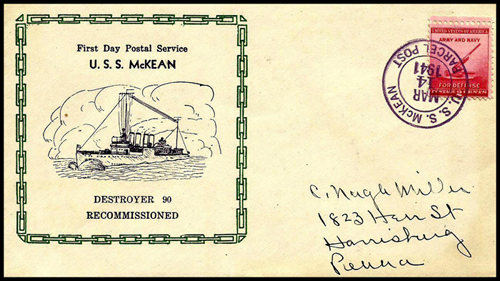 First Day Postal Service
U. S. S. McKEAN
DESTROYER 90
RECOMMISSIONED
U. S. S. McKEAN
MAR
14
1941
PARCEL POST
UNITED STATES OF AMERICA
ARMY AND NAVY
FOR DEFENSE
C. Hugh Miller
1823 Herr St
Harrisburg
Penna